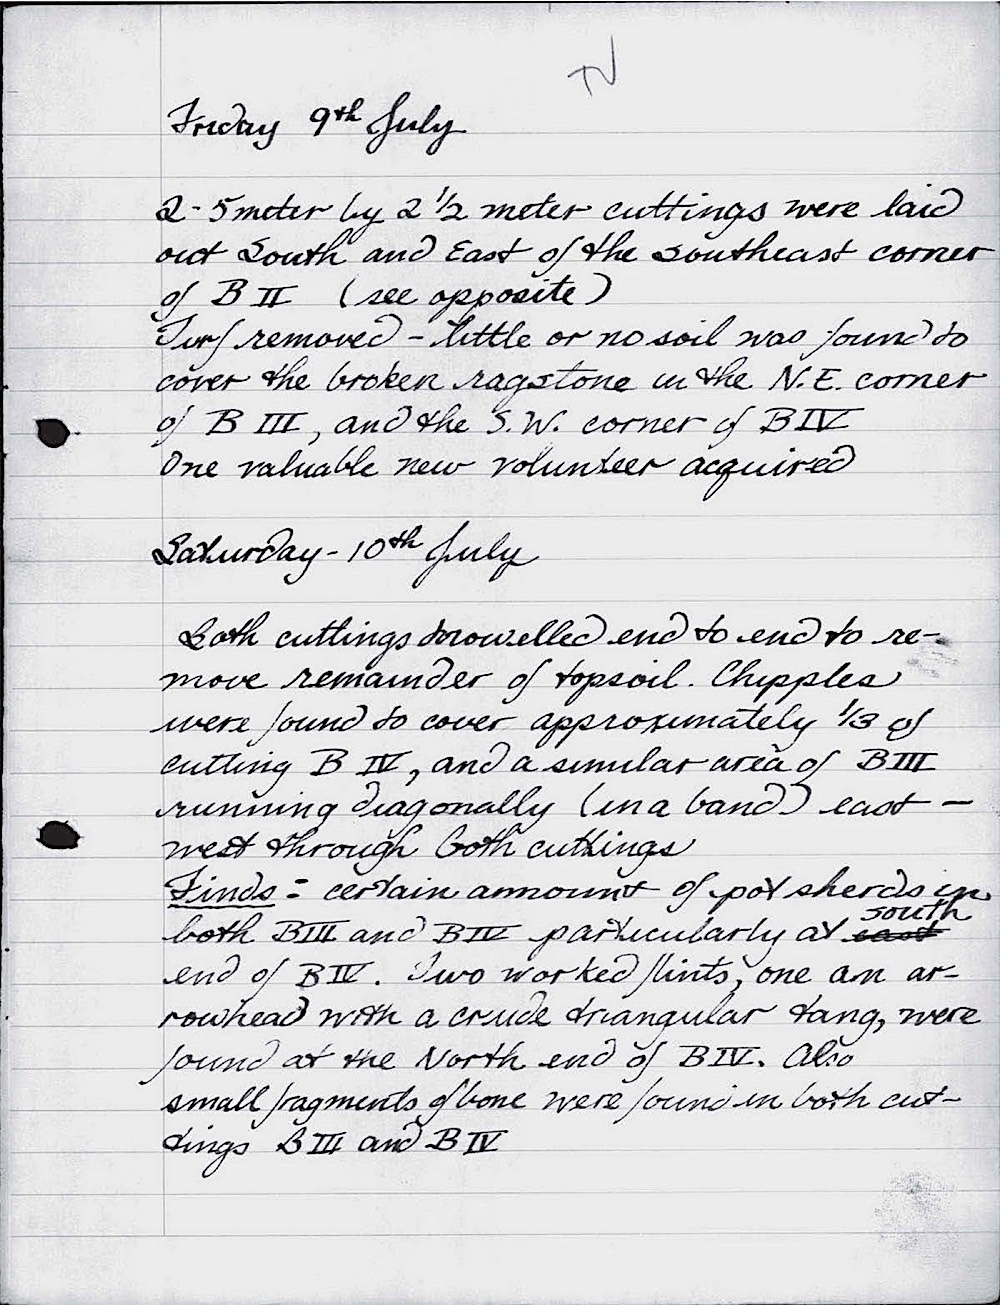 IV
Friday 9th July
2 - 5 meter by 2 1/2 meter cuttings were laid
out South and East of the Southeast corner
of B II (see opposite)
Turf removed - little or no soil was found to
cover the broken ragstone in the N.E. corner
of B III, and the S.W. corner of B IV
One valuable new volunteer acquired
Saturday - 10th July
Both cuttings trowelled end to end to re-
move remainder of topsoil. Chipples
were found to cover approximately 1/3 of
cutting B IV, and a similar area of B III
running diagonally (in a band) east -
west through both cuttings
Finds: certain ammount of pot sherds in
both BIII and BIV particularly at east south
end of BIV. Two worked flints, one an ar-
rowhead with a crude triangular tang, were
found at the North end of BIV. Also
small fragments of bone were found in both cut-
tings B III and B IV